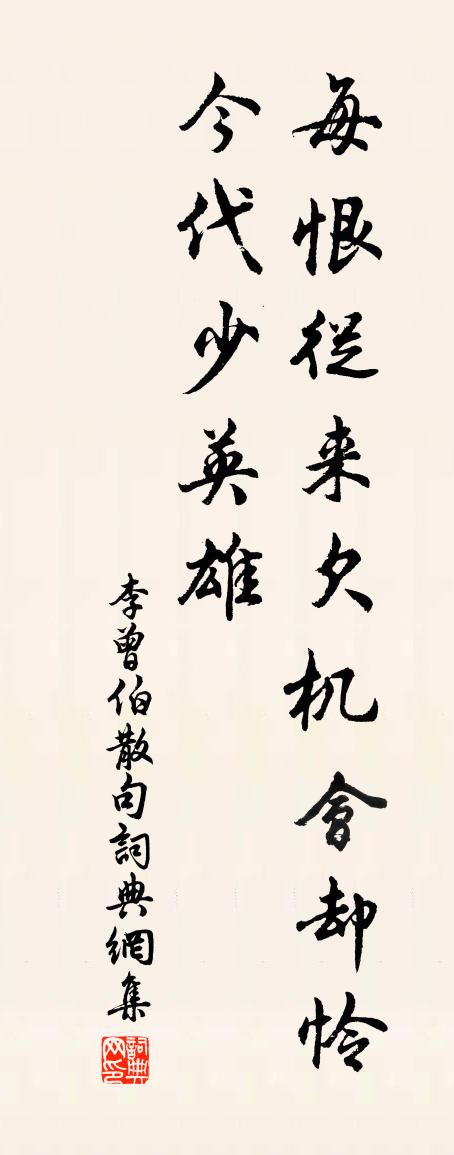 每恨從来欠机會却怜
今代少英雄
李曾伯散句詞典網集
詞典
网印